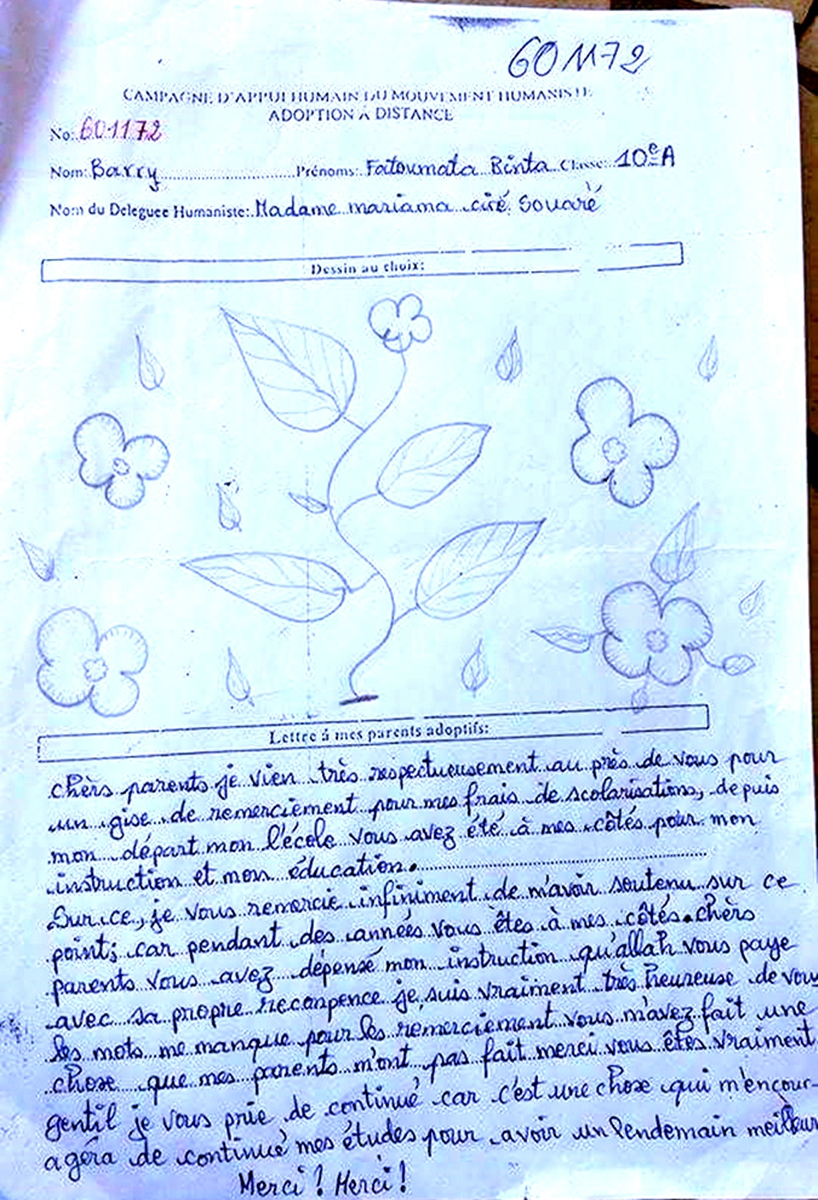 601172
CAMPAGNE D'APPUI HUMAIN DU MOUVEMENT HUMANISTE
ADOPTION A DISTANCE
No: 601172
Nom: Barry Prénoms: Fatoumata Binta Classe: 10e A
Nom du Deleguee Humaniste: Madame mariama ciré Souaré
Dessin au choix:
Lettre á mes parents adoptifs:
chèrs parents je vien très respectueusement au près de vous pour
un gise de remerciement pour mes frais de scolarisations, depuis
mon départ mon l'école vous avez été à mes côtés pour mon
instruction et mon éducation.
Sur ce, je vous remercie infiniment de m'avoir soutenu sur ce
point; car pendant des années vous êtes à mes côtés. chèrs
parents vous avez dépensé mon instruction qu'allah vous paye
avec sa propre reconpence je suis vraiment très heureuse de vous
les mots me manque pour les remerciement vous m'avez fait une
chose que mes parents m'ont pas fait merci vous êtes vraiment
gentil je vous prie de continué car c'est une chose qui m'encour-
agéra de continué mes études pour avoir un lendemain meilleur
Merci ! Merci !